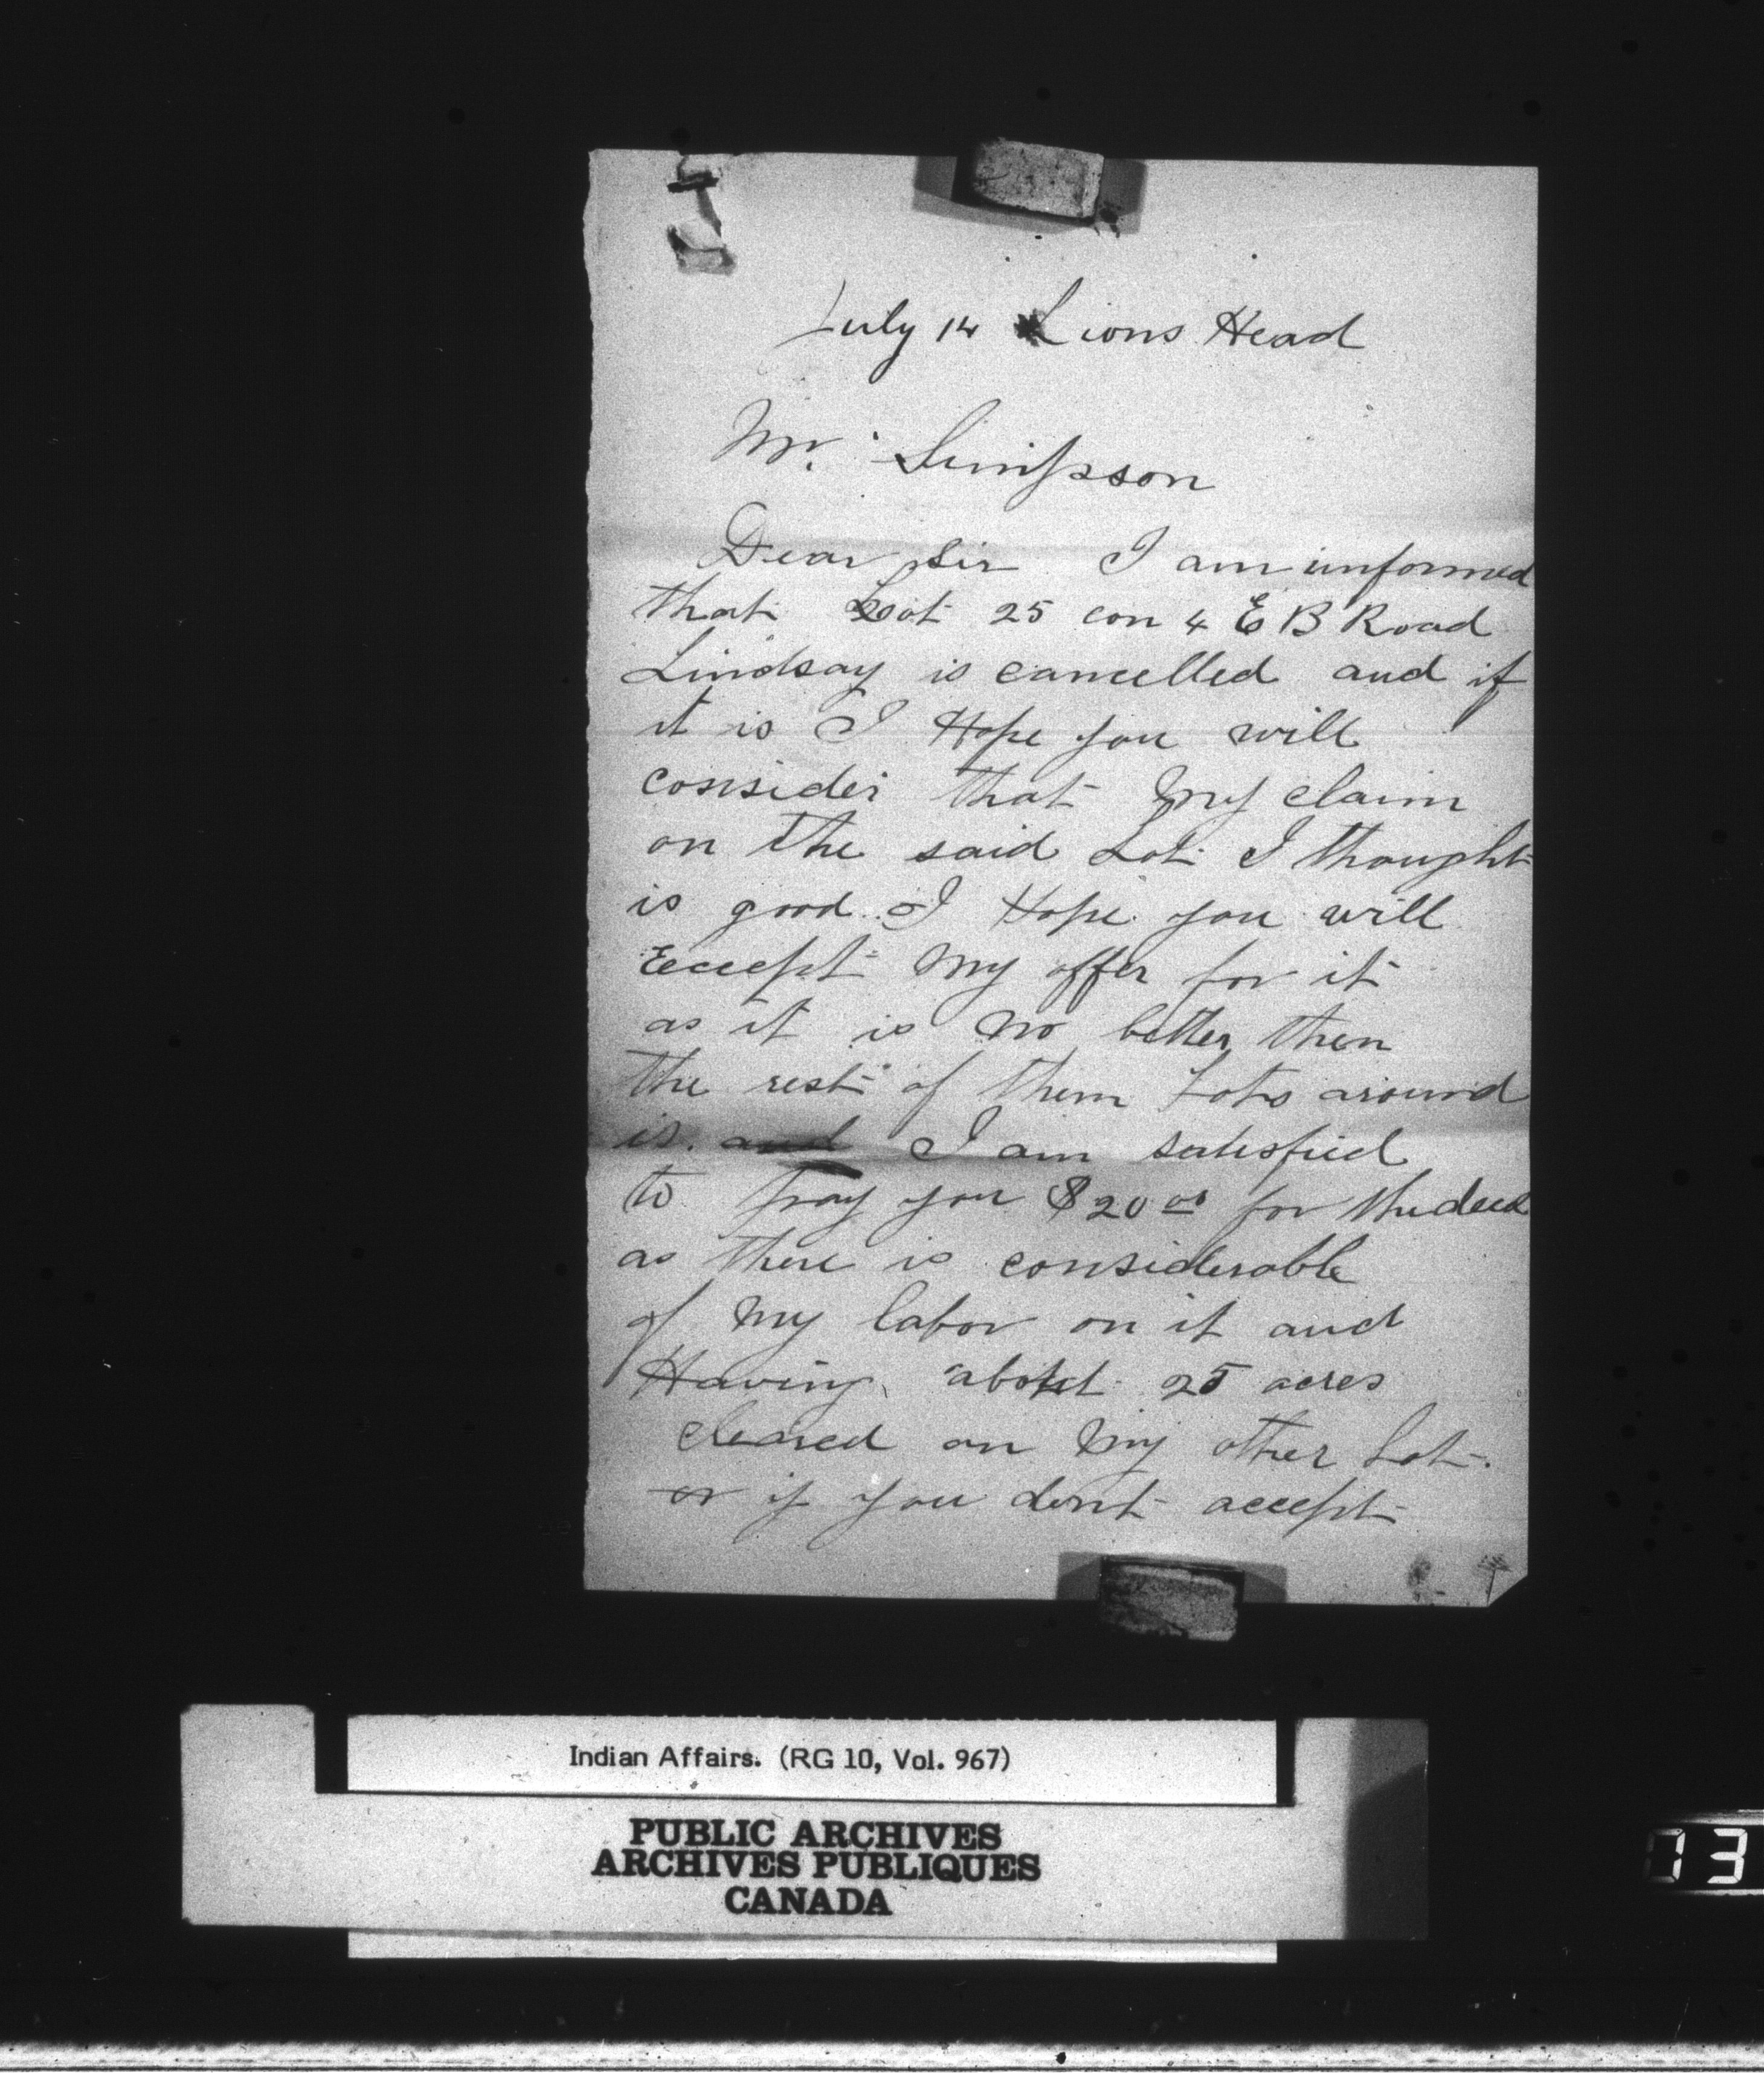 July 14 Lions Head
Mr. Simpson
Dear Sir I am informed
that Lot 25 con 4 E B Road
Lindsay is cancelled and if
it is I Hope you will
consider that My claim
on the said Lot I thought
is good. I Hope you will
Eccept My offer for it
as it is No better then
the rest of them Lots around
is. and I am satisfied
to pay you $20 00 for the deed
as there is considerable
of My labor on it and
Having about 25 acres
cleared on My other Lot.
or if you dont accept
Indian Affairs. (RG 10, Vol. 967)
PUBLIC ARCHIVES
ARCHIVES PUBLIQUES
CANADA
73